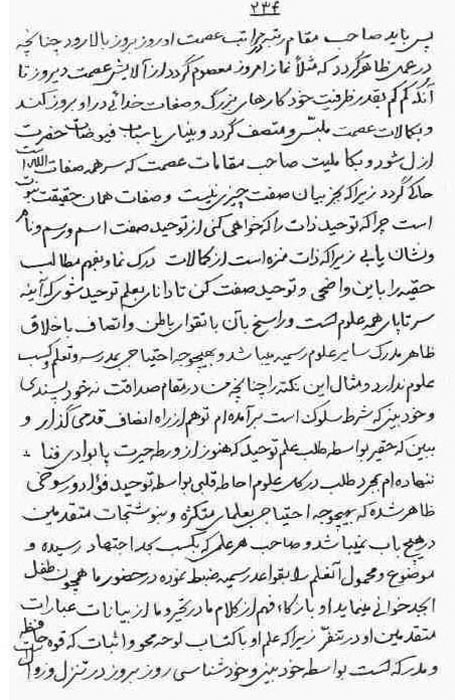 ٢٣۴
پس باید صاحب مقام رتبه مراتب عصمت او روز بروز بالا رود چنانچه
در عمی ظاهر گردد که مثلاً نماز امروز معصوم گردد از آلایش عصمت دیروز تا
آنکه کم کم بقدر ظرفیت خود کارهای بزرگ و صفات خدائی در او بروز کند
و بکمالات عصمت ملبس و متصف گردد و فیوضات حضرت
ازل شود و بکا ملیت صاحب مقامات عصمت که سر همه صفات الله است
حاکی گردد زیرا که بجز بیان صفت چیزی نیست و صفات همان حقیقت نبوت
است چرا که توحید ذات را که خواهی کنی از توحید صفت اسم و رسم و نام
و نشان یابی زیرا که ذات منزه است از کمالات درک نما و بفهم مطالب
حقیه را باین واضحی و توحید صفت کن تا دانای بعلم توحید شوی که آینه
سر تا پای همه علوم است و راسخ بآن با تقوای باطن و اتصاف باخلاق
ظاهر مدرک سایر علوم رسمیه میباشد و بهیچوجه احتیاجی بمدرسه و تعلم و کسب
علوم ندارد و مثال این نکته را چنانچه من در مقام صداقت نه خود پسندی
و خود بینی که شرط سلوک است برآمده ام تو هم از راه انصاف قدمی گذار و
ببین که حقیر بواسطه طلب علم توحید که هنوز از ورطه حیرت پا بوادی فنا
ننهاده ام بمجرد طلب در کل علوم احاطه قلبی بواسطه توحید فؤاد و رسوخی
ظاهر شده که بهیچوجه احتیاجی بعلمای متکثره و نوشتجات متقدمین
در هیچ باب نمیباشد و صاحب هر علمی که بکسب بحد اجتهاد رسیده و
موضوع و محمول آنعلم را بقواعد رسمیه ضبط نموده در حضور ما همچون طفل
ابجد خوانی مینماید او با زکاء فهم از کلام ما در تحیر و ما از بیانات عبارات
متقدمین او در تنفر زیرا که علم او با کتاب لوحه محو و اثبات که قوه حافظه
و مدرکه است بواسطه خود بینی و خود شناسی روز بروز در تنزل و زوال است